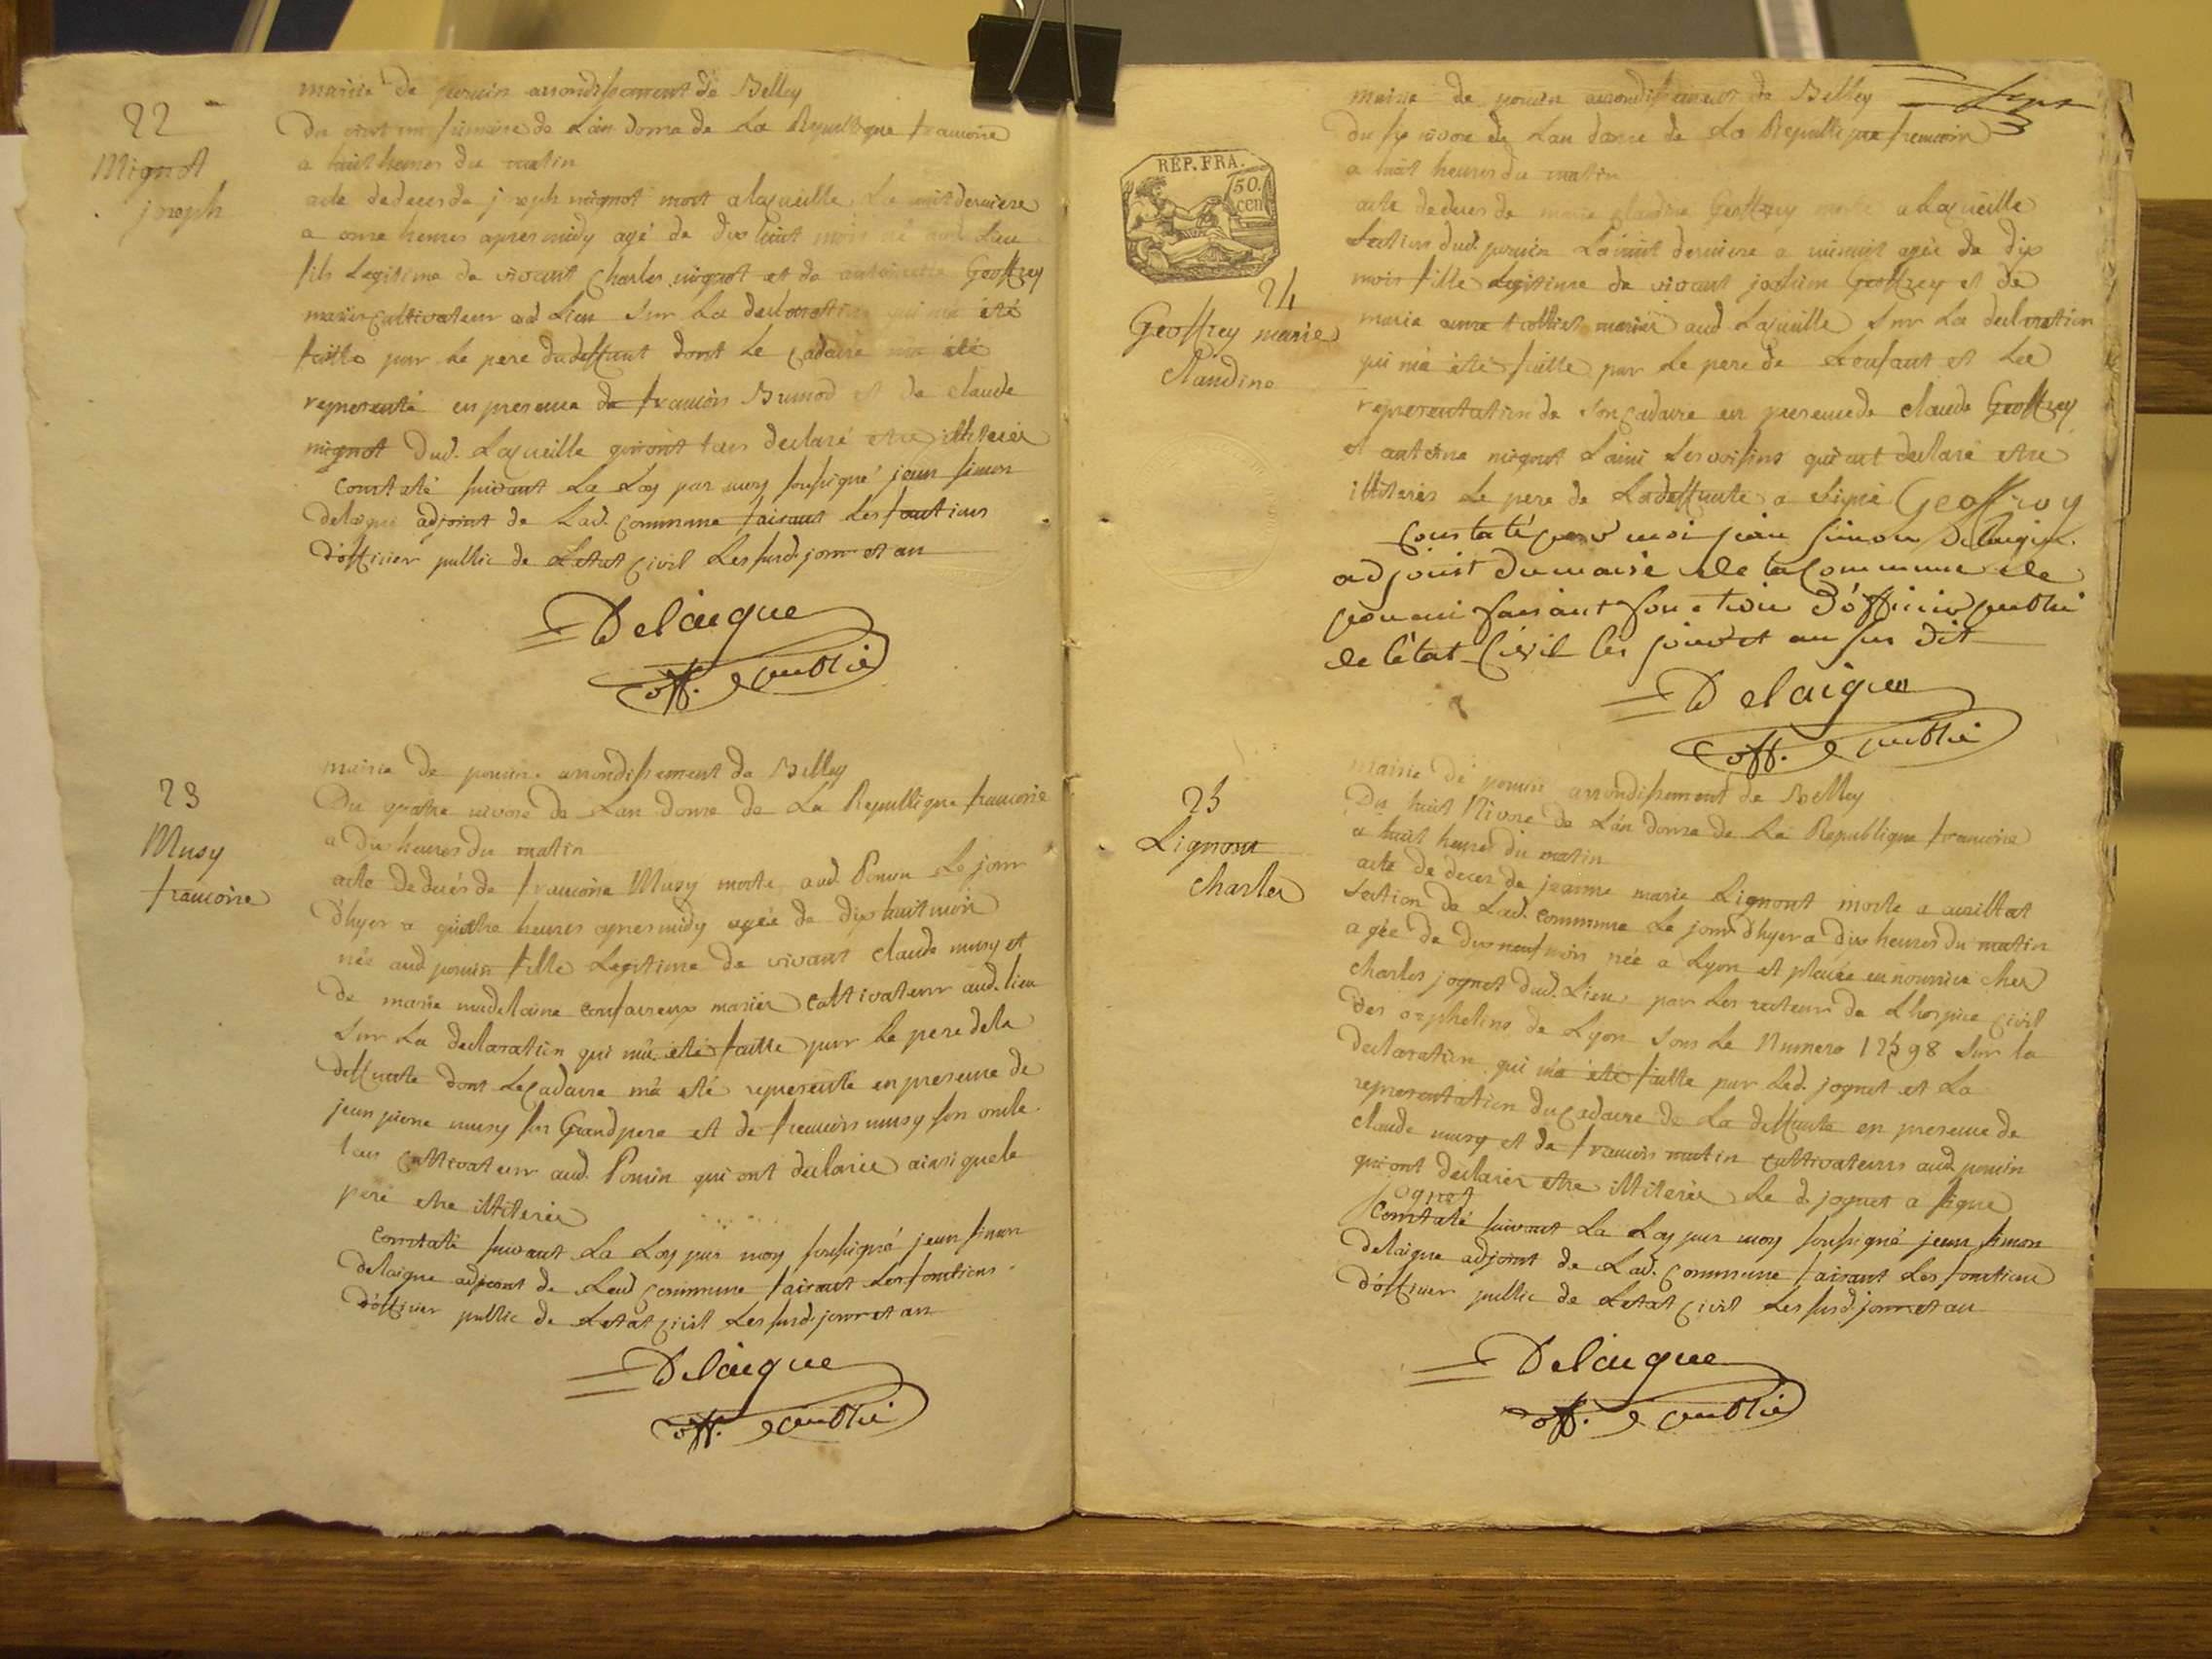 22
Mignot
joseph
mairie de pouin arrondissement de Belley
Du vint un frimaire de Lan douze de La Republique francoise
a huit heures du matin
acte de deces de joseph mignot mort a lagueille La nuit derniere
a onze heures apres midy agé de dix huit mois né aud Lieu
fils Legitime de vivant Charles mignot et de antoinette Geoffrey
mariés cultivateur aud Lieu Sur La declaration qui ma été
faitte par Le pere du deffunt dont Le Cadavre ma été
representé en presence de francois Bumod et de claude
mignot dud. Lagueille qui ont tous declaré etre illiterés
Constaté suivant La Loy par moy soussigné jean simon
delaigue adjoint de Lad. Commune faisant Les fontions
d'officier public de Letat Civil Les susd. jour et an
Delaigue
off. public
23
Musy
francoise
mairie de pouin arrondissement de Belley
Du quatre nivose de Lan douze de La Republique francoise
a dix heures du matin
acte de deces de francoise Musy morte aud Pouin Le jour
d'hyer a quatre heures apres midy agée de dix huit mois
née aud pouin fille Legitime de vivant claude musy et
de marie madelaine mariés Cultivateur aud. lieu
Sur La declaration qui ma été faitte par Le pere de la
deffunte dont Le Cadavre ma eté representé en presence de
jean pierre musy son Grand pere et de francois musy son oncle
tous Cultivateur aud. Pouin qui ont declarés ainsi que le
pere etre illiterés
Constaté suivant La Loy par moy soussigné jean simon
delaigue adjoint de Lad Commune faisant Les fonctions
d'officier public de Letat Civil Les susd. jour et an
Delaigue
off. public
sept
REP. FRA.
50.
cen
24
Geoffrey marie
claudine
mairie de pouin arrondissement de Belley
du six nivose de Lan douze de La Republique francoise
a huit heures du matin
acte de deces de marie claudine Geoffrey morte a Lagueille
Section dud. pouin La nuit derniere a minuit agée de dix
mois fille Legitime de vivant joachim Geoffrey et de
marie anne mariés aud Lagueille Sur La declaration
qui ma été faitte par Le pere de Lenfant et La
representation de son Cadavre en presence de claude Geoffrey
et antoine mignot Lainé Les voisins qui ont declaré etre
illiterés Le pere de La deffunte a signé Geoffroy
Constaté par moi jean simon Delaigue
adjoint du maire de la commune de
pouin faisant fonction d'officier public
de l'état Civil les jour et an sus dit
Delaigue
off. public
25
Lignont
charles
mairie de pouin arrondissement de Belley
Du huit Nivose de Lan douze de La Republique francoise
a huit heures du matin
acte de deces de jeanne marie Lignont morte a
Section de Lad. commune Le jour d'hyer a dix heures du matin
agée de dix neuf mois née a Lyon et placée en nourrice chez
charles jognet dud. Lieu par Les recteurs de Lhospice Civil
des orphelins de Lyon sous Le Numero 12598 Sur la
declaration qui ma été faitte par Led. jognet et La
representation du Cadavre de La deffunte en presence de
claude musy et de francois cultivateurs aud. pouin
qui ont declarés etre illiterés Le d. jognet a signé
jognet
Constaté suivant La Loy par moy soussigné jean simon
delaigue adjoint de Lad. Commune faisant Les fonctions
d'officier public de Letat Civil Les susd. jour et an
Delaigue
off. public